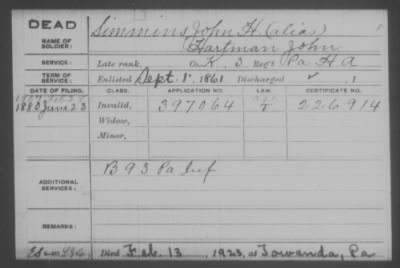 DEAD
NAME OF SOLDIER:
Simmins, John H. (alias)
Hartman John
SERVICE:
Late rank, Co. K. 3 Reg't Pa H A
TERM OF SERVICE:
Enlisted Sept. 1. 1861 Discharged , 1
DATE OF FILING. CLASS. APPLICATION NO. LAW. CERTIFICATE NO.
1880 June 23 Invalid, 397064 226914
Widow,
Minor,
ADDITIONAL SERVICES:
B 93 Pa Inf
REMARKS:
Died Feb. 13, 1923, at Towanda, Pa